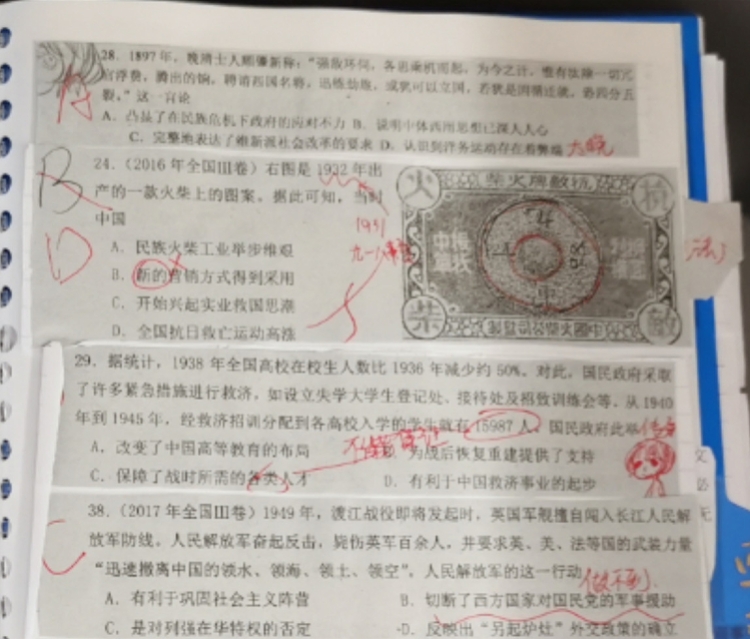 28. 1897年，晚清士人 称："强敌环伺，各思乘机而起，为今之计，惟有汰除一切冗
官浮费，腾出的饷，聘请西国名将，迅练劲旅，或犹可以立国，若犹是因循迁就，将四分五
裂。"这一言论
A. 凸显了在民族危机下政府的应对不力 B. 说明中体西用思想已深入人心
C. 完整地表达了维新派社会改革的要求 D. 认识到洋务运动存在着弊端
B
24.（2016年全国Ⅲ卷）右图是1932年出
产的一款火柴上的图案。据此可知，当时
中国
1931
九一八
D
A. 民族火柴工业举步维艰
B. 新的营销方式得到采用
C. 开始兴起实业救国思潮
D. 全国抗日救亡运动高涨
火 柴火牌敌抗 抗
柴 敌
29. 据统计，1938年全国高校在校生人数比1936年减少约50%。对此，国民政府采取
了许多紧急措施进行救济，如设立失学大学生登记处、接待处及招致训练会等。从1940
年到1945年，经救济招训分配到各高校入学的学生就有15987人。国民政府此举
A. 改变了中国高等教育的布局
B. 为战后恢复重建提供了支持
C. 保障了战时所需的各类人才
D. 有利于中国救济事业的起步
C
38.（2017年全国Ⅲ卷）1949年，渡江战役即将发起时，英国军舰擅自闯入长江人民解
放军防线。人民解放军奋起反击，毙伤英军百余人，并要求英、美、法等国的武装力量
"迅速撤离中国的领水、领海、领土、领空"。人民解放军的这一行动
(做不到)
A. 有利于巩固社会主义阵营
B. 切断了西方国家对国民党的军事援助
C. 是对列强在华特权的否定
D. 反映出"另起炉灶"外交政策的确立